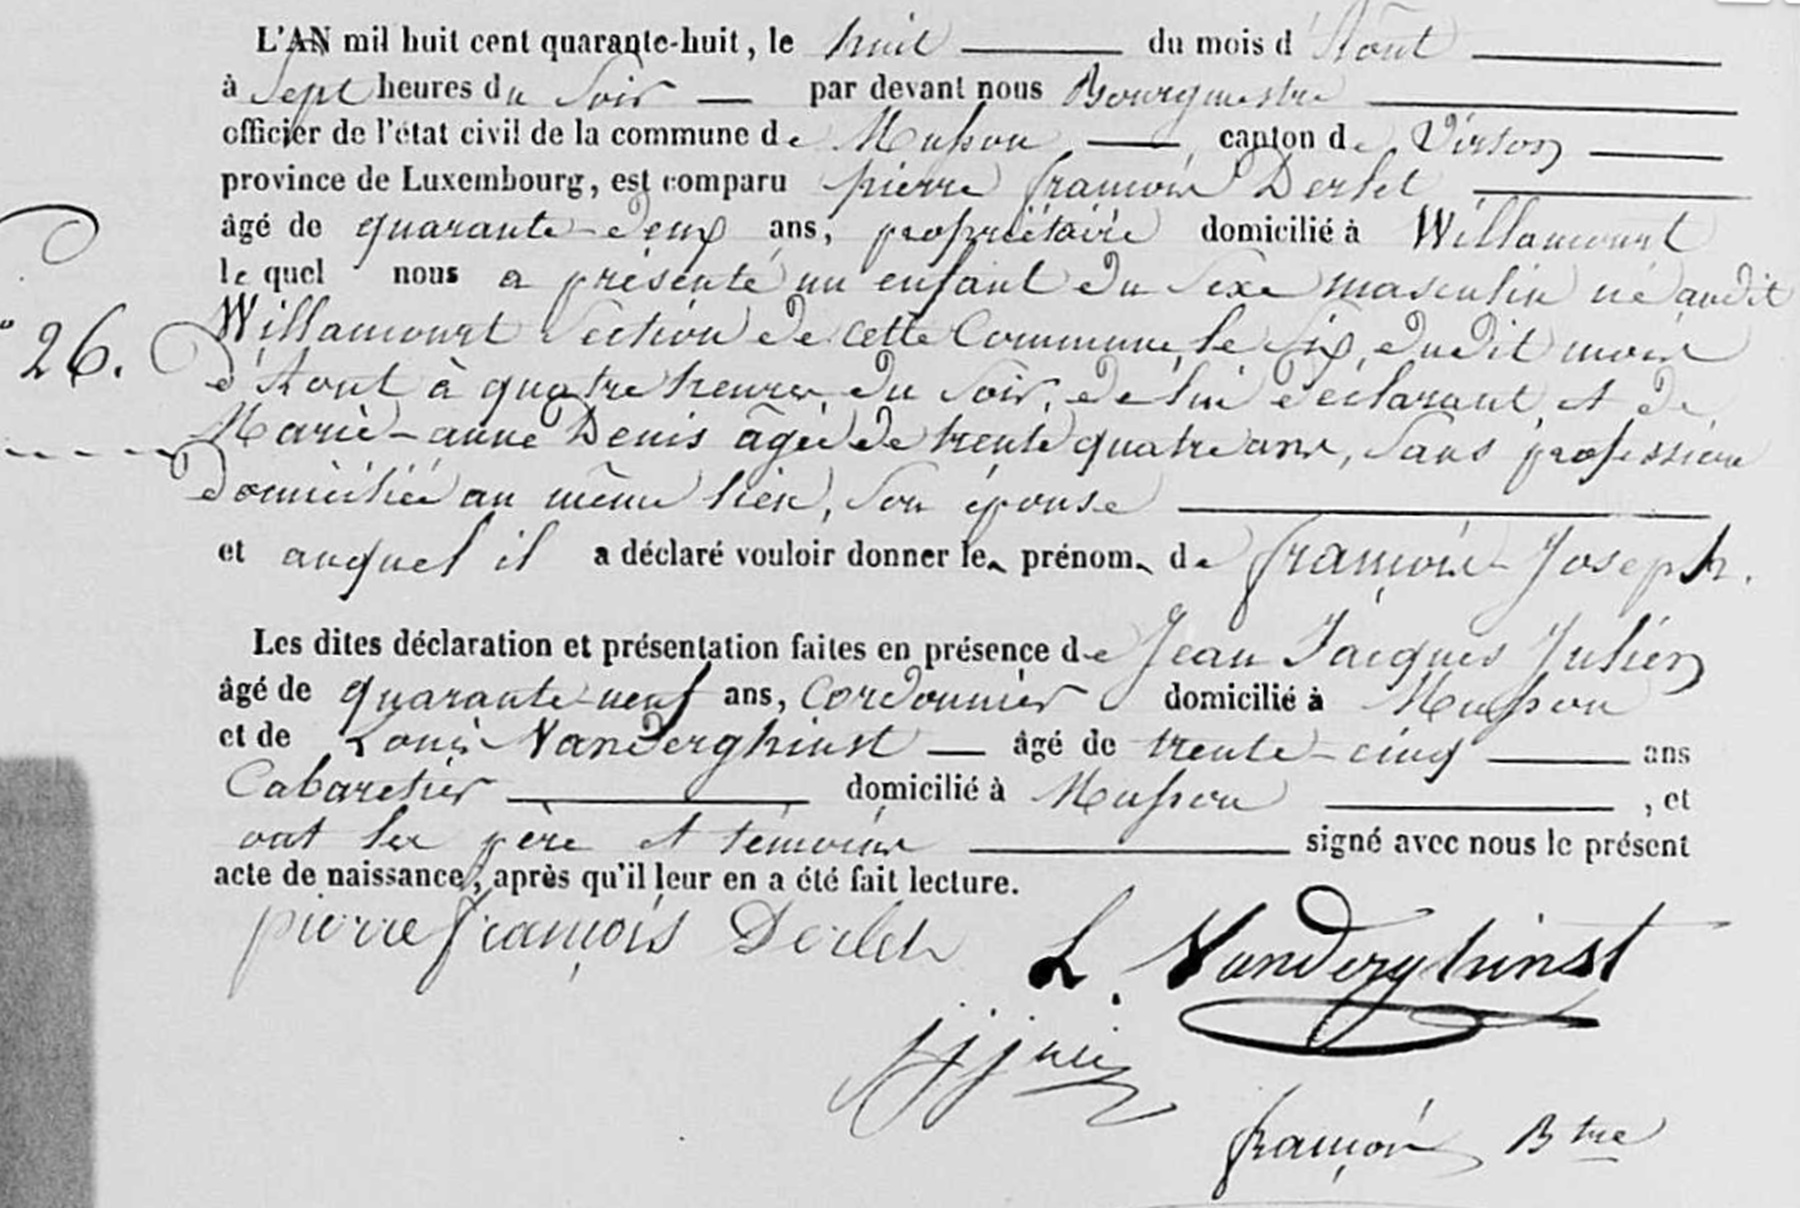 L'AN mil huit cent quarante-huit, le huit du mois d'Aout
à sept heures du soir par devant nous Bourgmestre
officier de l'état civil de la commune de Musson canton de Virton
province de Luxembourg, est comparu pierre françois Derlet
âgé de quarante-deux ans, propriétaire domicilié à Willancourt
le quel nous a présenté un enfant du sexe masculin né audit
Willancourt section de cette Commune, le six, dudit mois
d'Aout à quatre heures du soir, de lui déclarant, et de
Marie-anne Denis âgée de trente quatre ans, sans profession
domiciliée au même lieu, son épouse
et auquel il a déclaré vouloir donner les prénoms de françois-Joseph.
N° 26.
Les dites déclaration et présentation faites en présence de Jean Jacques Julien
âgé de quarante-neuf ans, Cordonnier domicilié à Musson
et de Louis Vanderghinst âgé de trente-cinq ans
Cabaretier domicilié à Musson, et
ont les père et témoins signé avec nous le présent
acte de naissance, après qu'il leur en a été fait lecture.
pierre françois Derlet
L. Vanderghinst
françois Btre